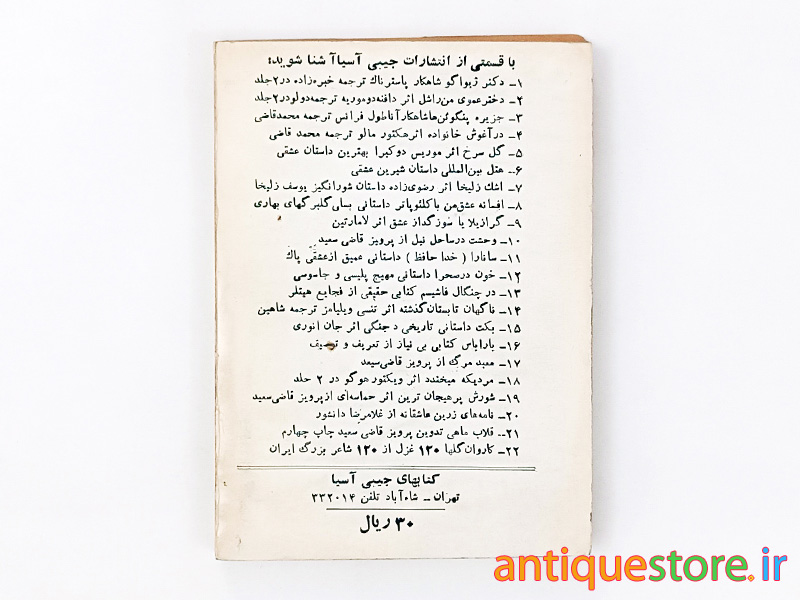 با قسمتی از انتشارات جیبی آسیا آشنا شوید:
۱ـ دکتر ژیواگو شاهکار پاسترناک ترجمه خبره‌زاده در ۲ جلد
۲ـ دخترعموی من راشل اثر دافنه دوموریه ترجمه دولو در ۲ جلد
۳ـ جزیره پنگوئن‌ها شاهکار آناطول فرانس ترجمه محمد قاضی
۴ـ در آغوش خانواده اثر هکتور مالو ترجمه محمد قاضی
۵ـ گل سرخ اثر موریس دوکبرا بهترین داستان عشقی
۶ـ هتل بین‌المللی داستان شیرین عشقی
۷ـ اشک زلیخا اثر رضوی‌زاده داستان شورانگیز یوسف زلیخا
۸ـ افسانه عشق من با کلئوپاتر داستانی بسان گلبرگهای بهاری
۹ـ گرازیلا یا سوز گداز عشق اثر لامارتین
۱۰ـ وحشت در ساحل نیل از پرویز قاضی سعید
۱۱ـ سانارا ( خدا حافظ ) داستانی عمیق از عشقی پاک
۱۲ـ خون در صحرا داستانی مهیج پلیسی و جاسوسی
۱۳ـ در چنگال فاشیسم کتابی حقیقی از فجایع هیتلر
۱۴ـ ناگهان تابستان گذشته اثر تنسی ویلیامز ترجمه شاهین
۱۵ـ بکت داستانی تاریخی د جنگی اثر جان انوری
۱۶ـ باراباس کتابی بی نیاز از تعریف و توصیف
۱۷ـ معبد مرگ از پرویز قاضی‌سیعد
۱۸ـ مردیکه میخندد اثر ویکتور هوگو در ۲ جلد
۱۹ـ شورش پرهیجان ترین اثر حماسه‌ای از پرویز قاضی‌سعید
۲۰ـ نامه‌های زرین عاشقانه از غلامرضا دانشور
۲۱ـ قلاب ماهی تدوین پرویز قاضی سعید چاپ چهارم
۲۲ـ کاروان گلها ۱۲۰ غزل از ۱۲۰ شاعر بزرگ ایران
کتابهای جیبی آسیا
تهران ـ شاه‌آباد تلفن ۳۳۲۰۱۴
۳۰ ریال
antiquestore.ir